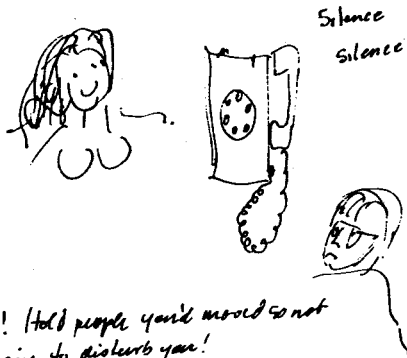 Silence
Silence
! Told people you'd moved so not
to disturb you!